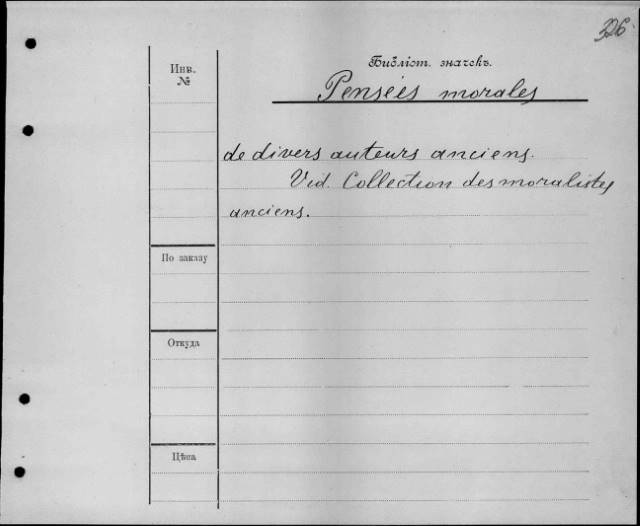 326
Инв.
№
Библіот. значекъ.
Pensées morales
de divers auteurs anciens.
Vid. Collection des moralistes
anciens.
По заказу
Откуда
Цѣна